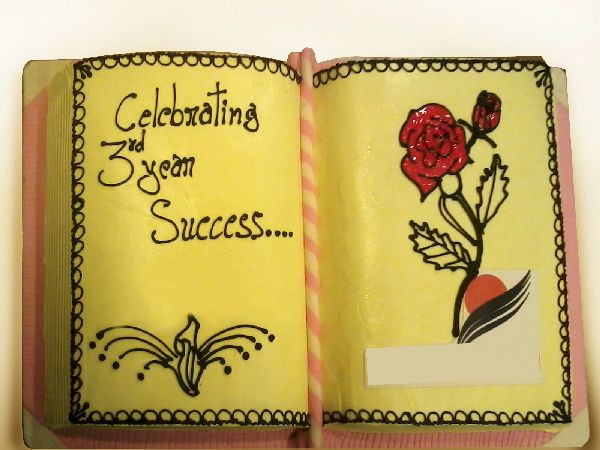 Celebrating
3rd year
Success....